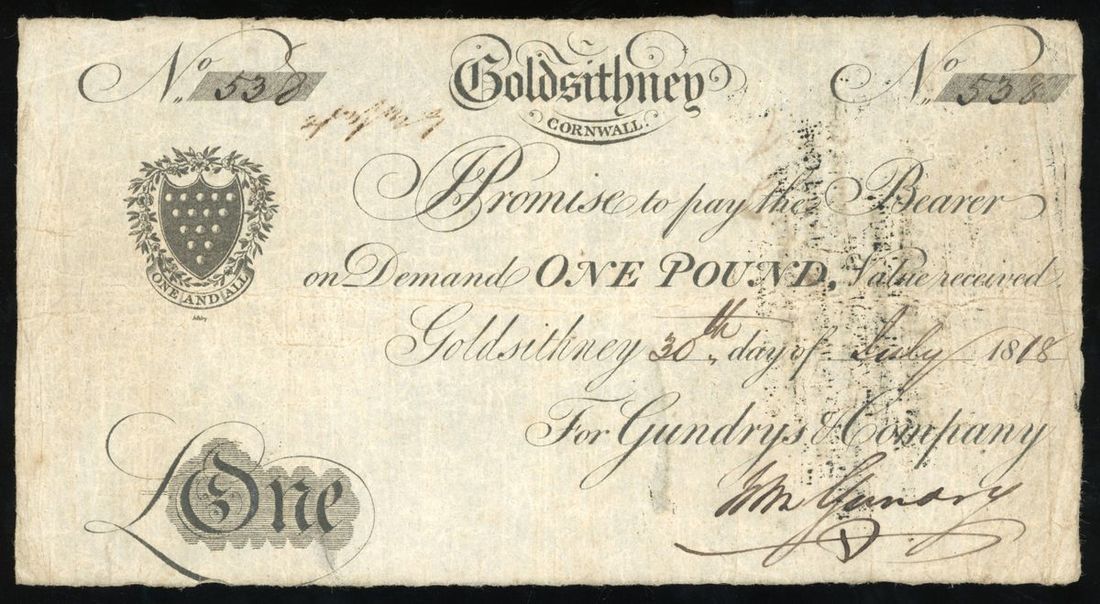 No. 538
Goldsithney
CORNWALL.
No. 538
I Promise to pay the Bearer
on Demand ONE POUND, Value received
ONE AND ALL
Goldsithney 30th day of July 1818
For Gundrys & Company
£One
Wm Gundry